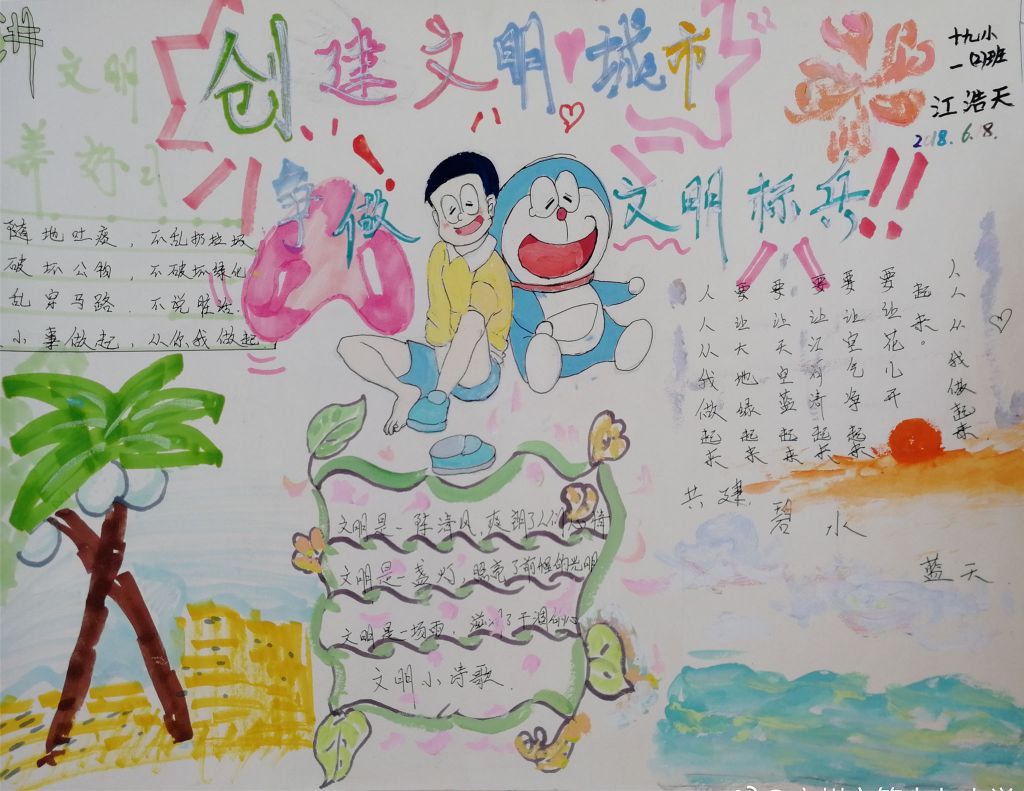 创建文明城市
十九小
一(2)班
江浩天
2018.6.8.
讲文明
养好习
争做文明标兵!!
随地吐痰，不乱扔垃圾
破坏公物，不破坏绿化
乱穿马路，不说脏话.
小事做起，从你我做起
人人从我做起来
要让大地绿起来
要让天空蓝起来
要让江河清起来
要让空气净起来
要让花儿开
起来。
人人从我做起来.
共建碧水
蓝天
文明是一阵清风，爽朗了人们心情
文明是一盏灯，照亮了前程的光明
文明是一场雨，滋润了干涸的心
文明小诗歌.